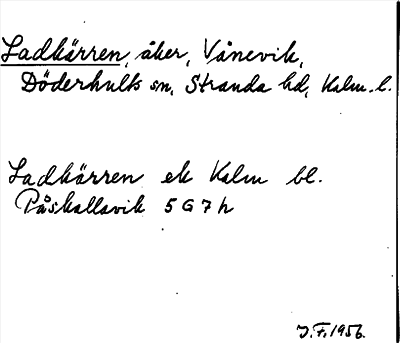 Ladkärren, åker, Vånevik,
Döderhults sn, Stranda hd, Kalm. l.
Ladkärren ek Kalm bl.
Påskallavik 5 G 7 h
J. F. 1956.